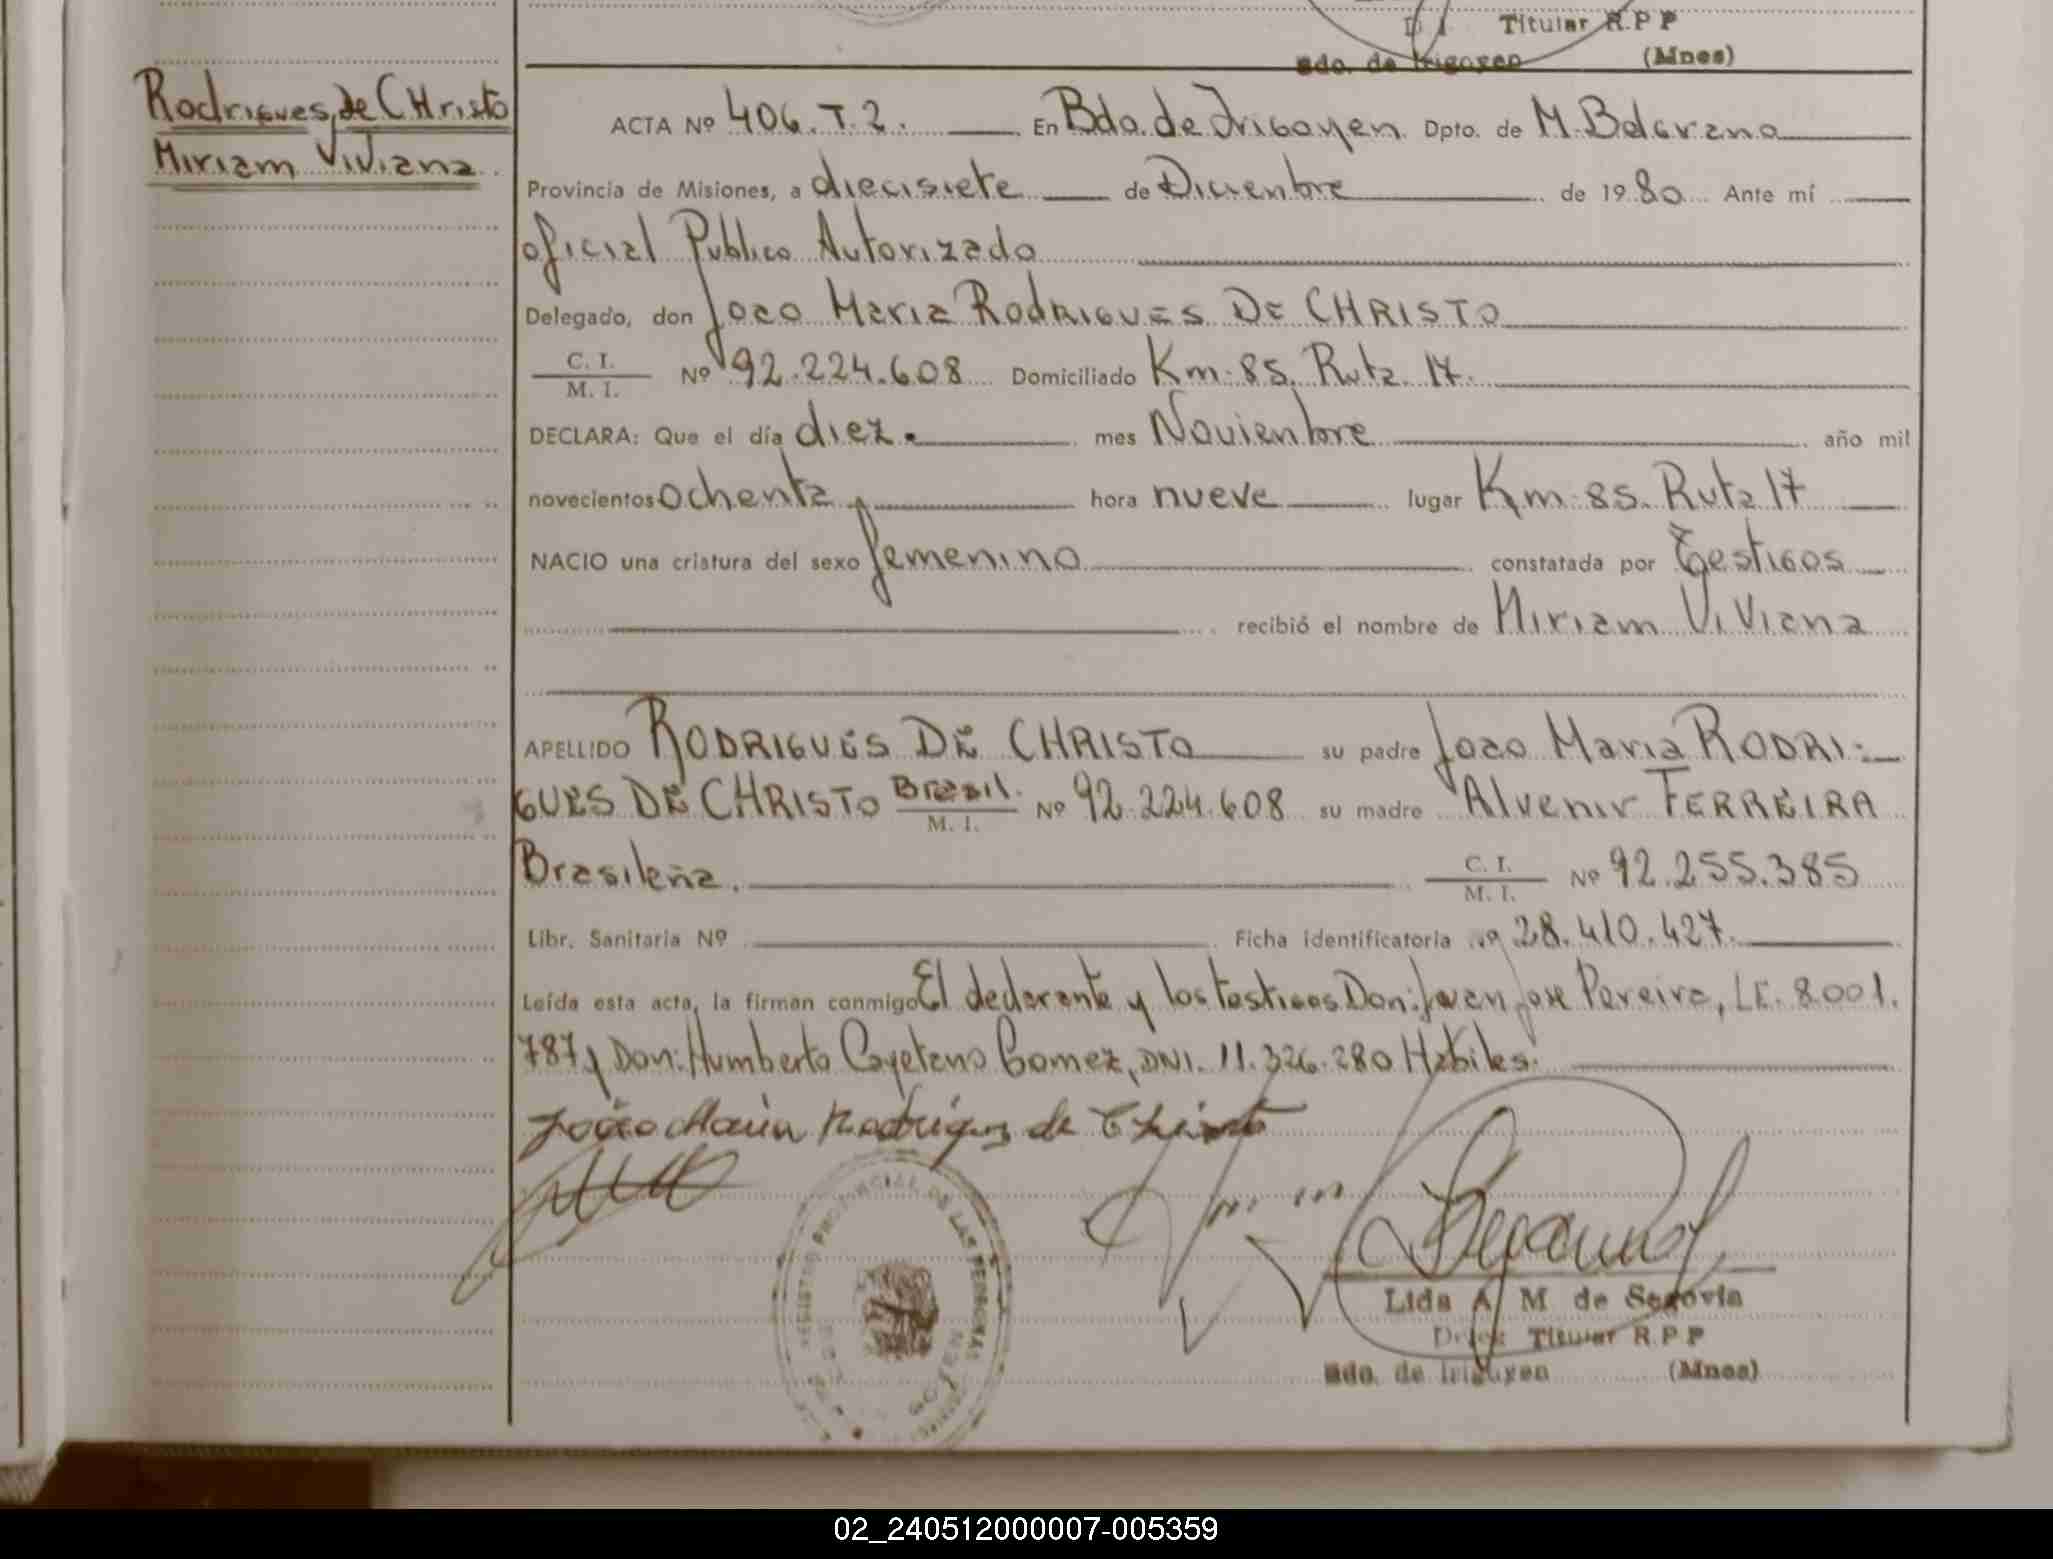 D I Titular R.P P
Bdo. de Irigoyen (Mnes)
Rodrigues, de CHristo
Miriam ViViana
ACTA Nº 406. T. 2. En Bdo. de Irigoyen. Dpto. de M. Belgrano
Provincia de Misiones, a diecisiete de Diciembre de 19 80 Ante mí
oficial Publico Autorizado
Delegado, don Joao Maria RODRIGUES DE CHRISTO
C. I.
M. I. Nº 92.224.608 Domiciliado Km: 85. Ruta 17.
DECLARA: Que el día diez. mes Noviembre año mil
novecientos ochenta, hora nueve lugar Km: 85. Ruta 17
NACIO una criatura del sexo femenino constatada por Testigos
recibió el nombre de Miriam ViViana
APELLIDO RODRIGUES DE CHRISTO su padre Joao Maria RODRI:
GUES DE CHRISTO Brasil. M. I. Nº 92.224.608 su madre Alvenir FERREIRA
Brasileña. C. I.
M. I. Nº 92.255.385
Libr. Sanitaria Nº Ficha identificatoria nº 28.410.427.
Leída esta acta, la firman conmigo El declarante y los testigos Don: Juan Jose Pereira, L.E. 8.001.
787 y Don: Humberto Cayetano Gomez, DNI. 11.326.280 Habiles.
João Maria Rodrigues de Christo
REGISTRO PROVINCIAL DE LAS PERSONAS
Lida A M de Segovia
Titular R.P P
Bdo. de Irigoyen (Mnes)
02_240512000007-005359